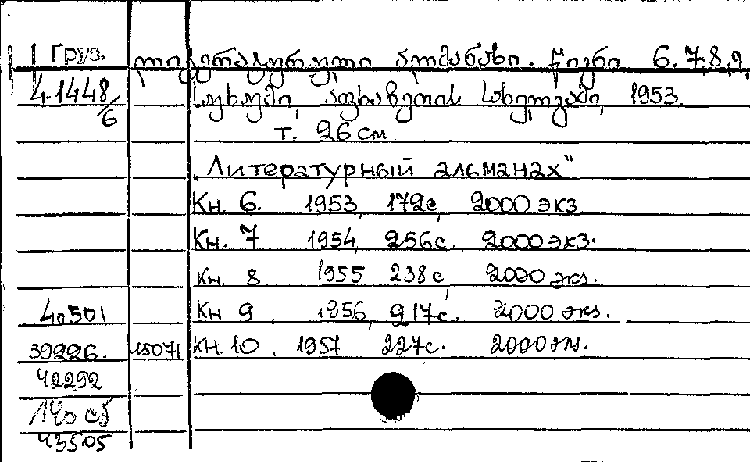 1 Груз. ლიტერატურული ალმანახი. წიგნი 6.7.8.9,
4.1448/6 სოხუმი, აფხაზეთის სახელგამი, 1953.
т. 26 см
„Литературный альманах"
Кн. 6. 1953, 172с, 2000 экз
Кн. 7 1954, 256с. 2000 экз.
Кн. 8 1955 238с 2000 экз.
40501 Кн 9 1956, 217с. 2000 экз.
39226. 15071 Кн. 10. 1957 227с. 2000 эк.
42292
140 сб
43505